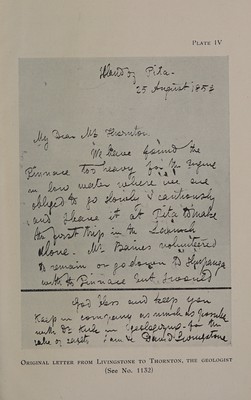 PLATE IV
Island of Pita.
25 August 1858
My Dear Mr Thornton.
We have found the
Pinnace too heavy for the engine
in low water where we are
obliged to go slowly & cautiously
and leave it at Pita to make
the first trip in the Launch
alone. Mr Baines volunteered
to remain or go down to
with the Pinnace but
God bless and keep you
Keep in company as much as possible
with Dr Kirk in - for the
sake of David Livingstone
ORIGINAL LETTER FROM LIVINGSTONE TO THORNTON, THE GEOLOGIST
(See No. 1132)